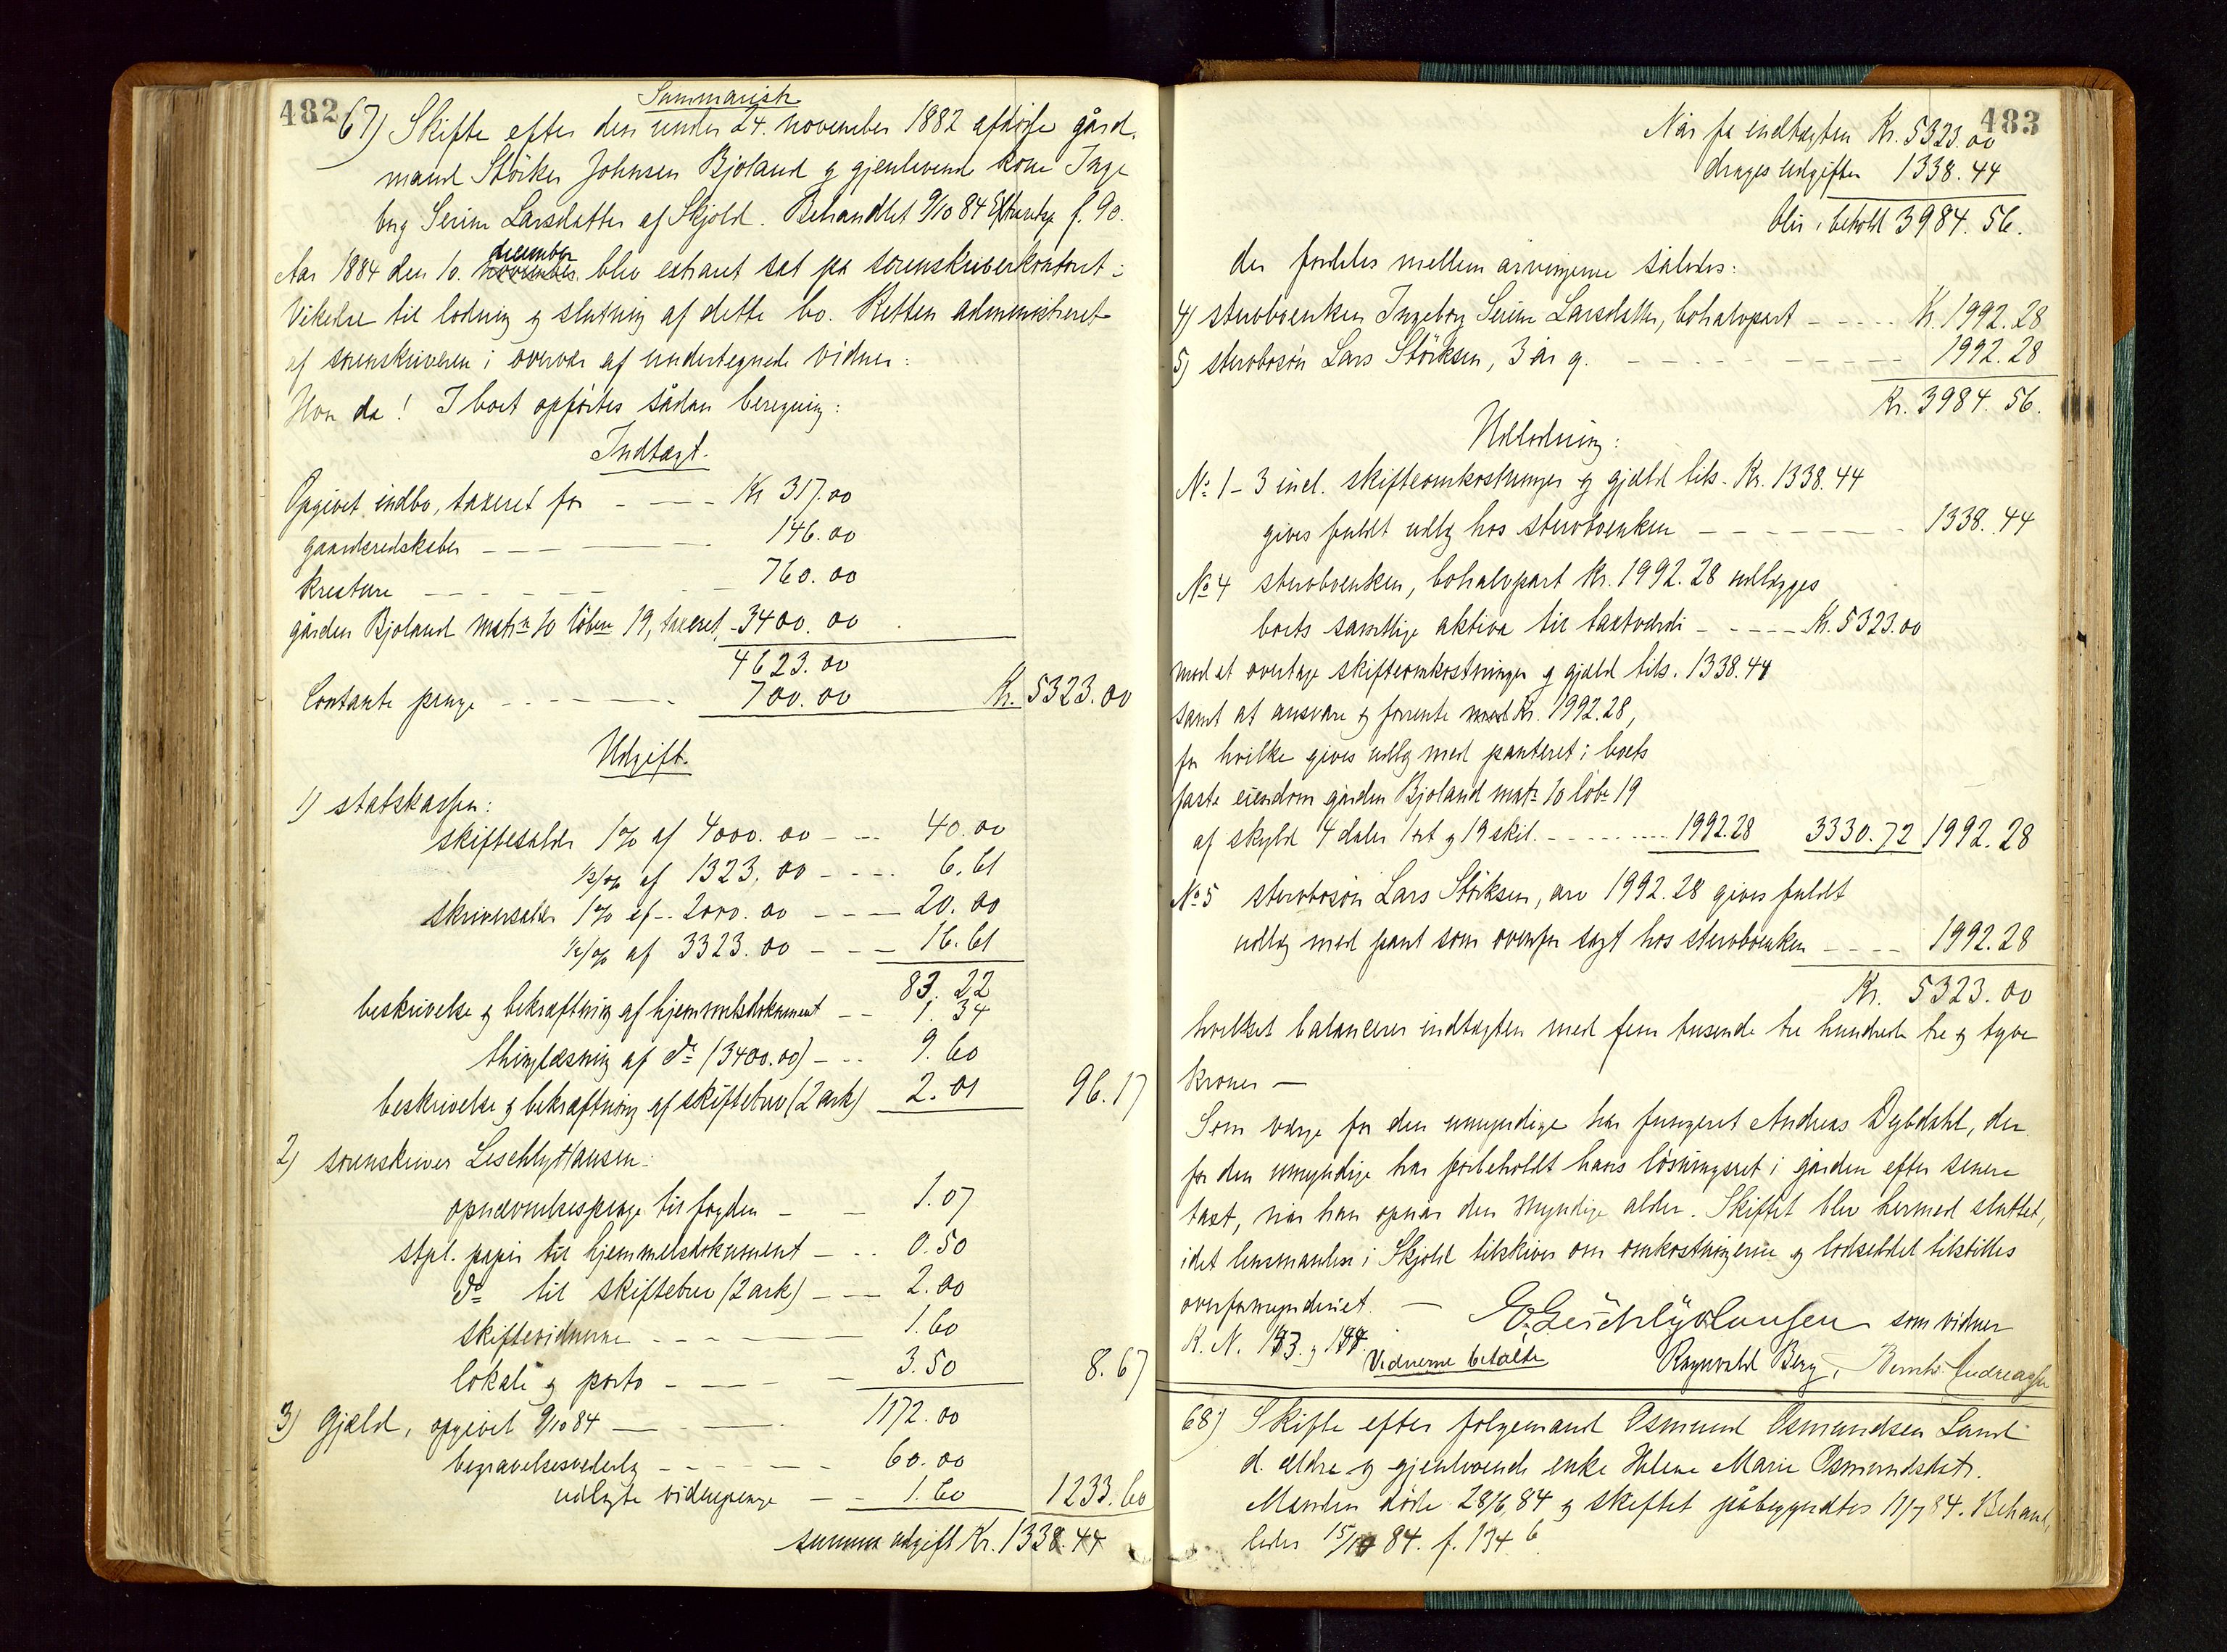 482
Summarisk
67) Skifte efter den under 24. november 1882 afdøde gård,
mand Störker Johnsen Bjoland & gjenlevende kone Inge
borg Serine Larsdatter af Skjold. Behandlet 9/10 84 f. 90.
Aar 1884 den 10. december blev extraret sat på sorenskriverkontoret i
Vikedal til lodning & slutning af dette bo. Retten administreret
af sorenskriveren i overvær af undertegnede vidner:
Hvor da! I boet opførtes sådan beregning:
Indtægt.
Opgivet indbo, taxeret for - - - - Kr 317.00
gaardsredskaber - - - - 146.00
kreature - - - - 760.00
gården Bjoland matr. no 10 löbeno 19, taxeret - 3400.00
4623.00
Contante penge - - - - 700.00 Kr. 5323.00
Udgift.
1) statskassen:
skiftesalær 1% af 4000.00 - - - 40.00
1/2% af 1323.00 - - - 6.61
skriversalær 1% af - 2000.00 - - - 20.00
1/2% af 3323.00 - - - 16.61
83.22
beskrivelse & bekræftning af hjemmelsdokument - - 1.34
thinglæsning af do (3400.00) - - - 9.60
beskrivelse & bekræftning af skiftebrev (2 ark) 2.01 96.17
2) sorenskriver Leschly Hansen:
opnævnelsespenge til fogden - - 1.07
stpl. papir til hjemmelsdokument - - - 0.50
do til skiftebrev (2 ark) - - - 2.00
skiftevidnerne - - - - 1.60
lokale & porto - - - - 3.50 8.67
3) Gjæld, opgivet 9/10 84 - - - 1172.00
begravelsesvederlag - - - - 60.00
udlagte vidnepenge - - 1.60 1233.60
summa udgift Kr. 1338.44
483
Når fra indtægten Kr. 5323.00
drages udgiften 1338.44
bliver i behold 3984.56.
der fordeles mellem arvingerne således:
4) stervboenken Ingeborg Serine Larsdatter, bohalvpart - - - - Kr. 1992.28
5) stervbosøn Lars Störksen, 3 år g. - - - - 1992.28
Kr. 3984.56.
Udlodning:
No 1-3 incl. skifteomkostninger & gjæld tils. Kr. 1338.44
gives fuldt udlæg hos stervboenken - - - - 1338.44
No 4 stervboenken, bohalvpart Kr. 1992.28 udlægges
boets samtlige aktiva til taxtværdi - - - - Kr. 5323.00
mod at overtage skifteomkostninger & gjæld tils. 1338.44
samt at ansvare & forrente Kr. 1992.28,
for hvilke gives udlæg med panteret i boets
faste eiendom gården Bjoland matr. 10 löbno 19
af skyld 4 daler 1 ort & 19 skil. - - - - 1992.28 3330.72 1992.28
No 5 stervbosøn Lars Störksen, arv 1992.28 gives fuldt
udlæg med pant som ovenfor sagt hos stervboenken - - - - 1992.28
Kr. 5323.00
hvilket balancerer indtægten med fem tusende tre hundrede tre & tyve
kroner —
Som værge for den umyndige har fungeret Andreas Dybdahl, der
for den umyndige har forbeholdt hans løsningsret i gården efter senere
taxt, når han opnår den myndige alder. Skiftet blev hermed sluttet,
idet lensmanden i Skjold tilskives om omkostningerne & lodseddel tilstilles
overformynderiet. — E. Leschly Hansen som vidner
Vidnerne betalte Ragnvald Berg, Bernh. Andreassen
68) Skifte efter følgemand Osmund Osmundsen Sand
d. ældre & gjenlevende enke Helene Marie Osmundsdatr.
Manden døde 28/6 84 & skiftet påbegyndtes 17/7 84. Behand,
ledes 15/10 84. f. 134 b